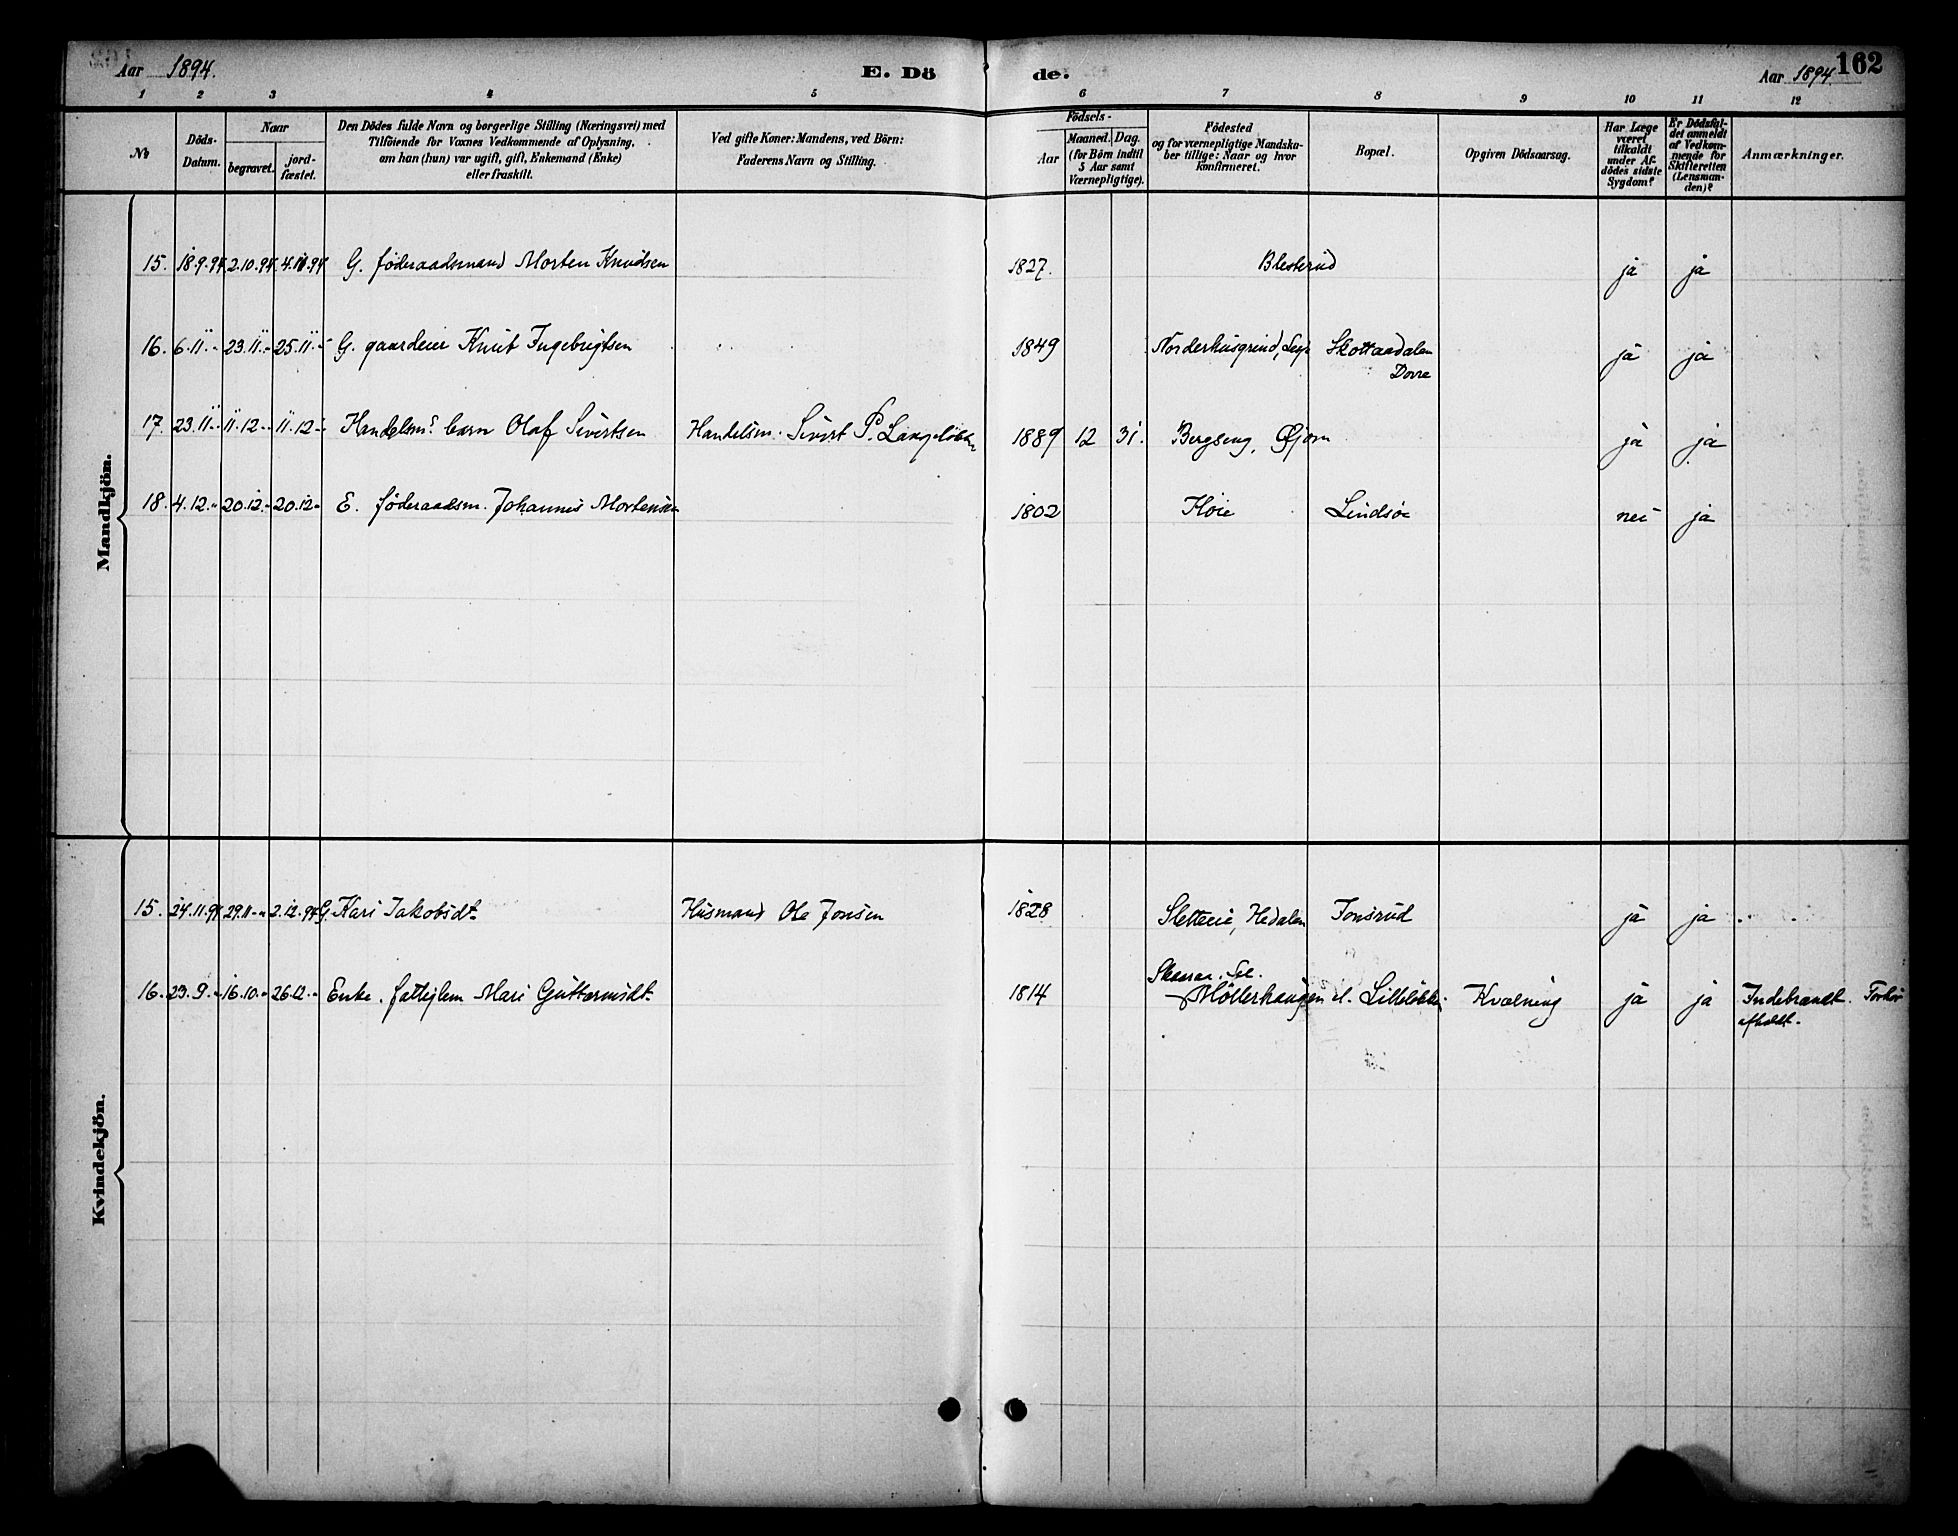 Aar 1894. E. Dö de. Aar 1894. 162
1 2 3 4 5 6 7 8 9 10 11 12
No
Döds-Datum.
Naar
begravet.
jord-fæstet.
Den Dödes fulde Navn og borgerlige Stilling (Næringsvei) med
Tilföiende for Voxnes Vedkommende af Oplysning,
om han (hun) var ugift, gift, Enkemand (Enke)
eller fraskilt.
Ved gifte Koner: Mandens, ved Börn:
Faderens Navn og Stilling.
Födsels-
Aar
Maaned. Dag.
(for Börn indtil
5 Aar samt
Værnepligtige).
Födested
og for værnepligtige Mandska-
ber tillige: Naar og hvor
konfirmeret.
Bopæl.
Opgiven Dödsaarsag.
Har Læge
været
tilkaldt
under Af-
dödes sidste
Sygdom?
Er Dödsfal-
det anmeldt
af Vedkom-
mende for
Skifteretten
(Lensman-
den)?
Anmærkninger.
Mandkjön.
15. 18.9.94 2.10.94 4.10.94 G. föderaadsmand Morten Knudsen 1827. Blesterud ja ja
16. 6.11.- 23.11.- 25.11.- G. gaardeier Knut Ingebrigtsen 1849 Norderhusgrind, Lesje Skottaadalen ja ja
Dovre
17. 23.11.- 11.12.- 11.12.- Handelsms barn Olaf Sivertsen Handelsm. Sivert P. Langeløkken 1889 12 31. Bergseng, Øjorn ja ja
18. 4.12.- 20.12.- 20.12.- E. föderaadsm. Johannes Mortensen 1802 Høie Lindsøe nei ja
Kvindekjön.
15. 24.11.94 29.11.- 2.12.94 G. Kari Jakobsdt. Husmand Ole Jonsen 1828 Sletteie, Hedalen Tonsrud ja ja
Skarar. Sel.
16. 29.9.- 16.10.- 26.12.- Enke. fattiglem Mari Guttormsdt. 1814 Möllerhaugen el. Lilleløkken Kvælning ja ja Indebrændt. Forhör
afholdt.